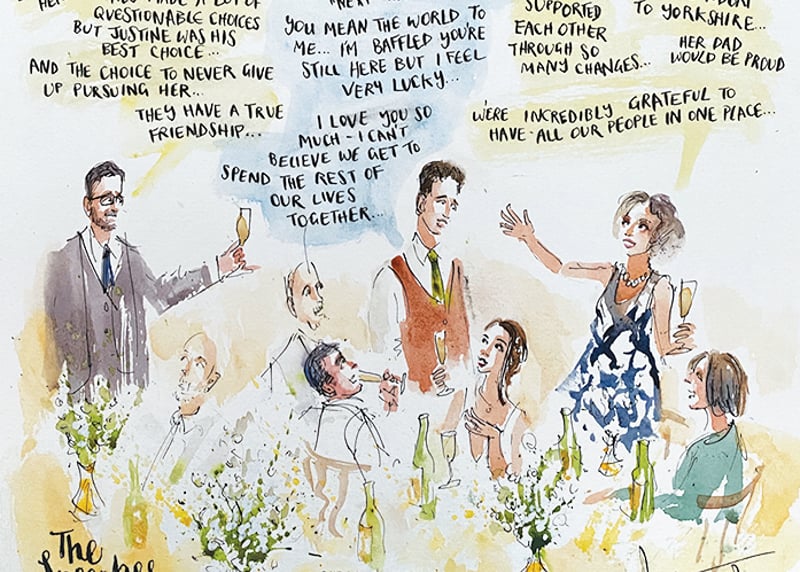 MADE A LOT OF
QUESTIONABLE CHOICES
BUT JUSTINE WAS HIS
BEST CHOICE...
AND THE CHOICE TO NEVER GIVE
UP PURSUING HER...
THEY HAVE A TRUE
FRIENDSHIP...
YOU MEAN THE WORLD TO
ME... I'M BAFFLED YOU'RE
STILL HERE BUT I FEEL
VERY LUCKY...
I LOVE YOU SO
MUCH - I CAN'T
BELIEVE WE GET TO
SPEND THE REST OF
OUR LIVES
TOGETHER...
SUPPORTED
EACH OTHER
THROUGH SO
MANY CHANGES...
TO YORKSHIRE...
HER DAD
WOULD BE PROUD
WE'RE INCREDIBLY GRATEFUL TO
HAVE ALL OUR PEOPLE IN ONE PLACE...
The